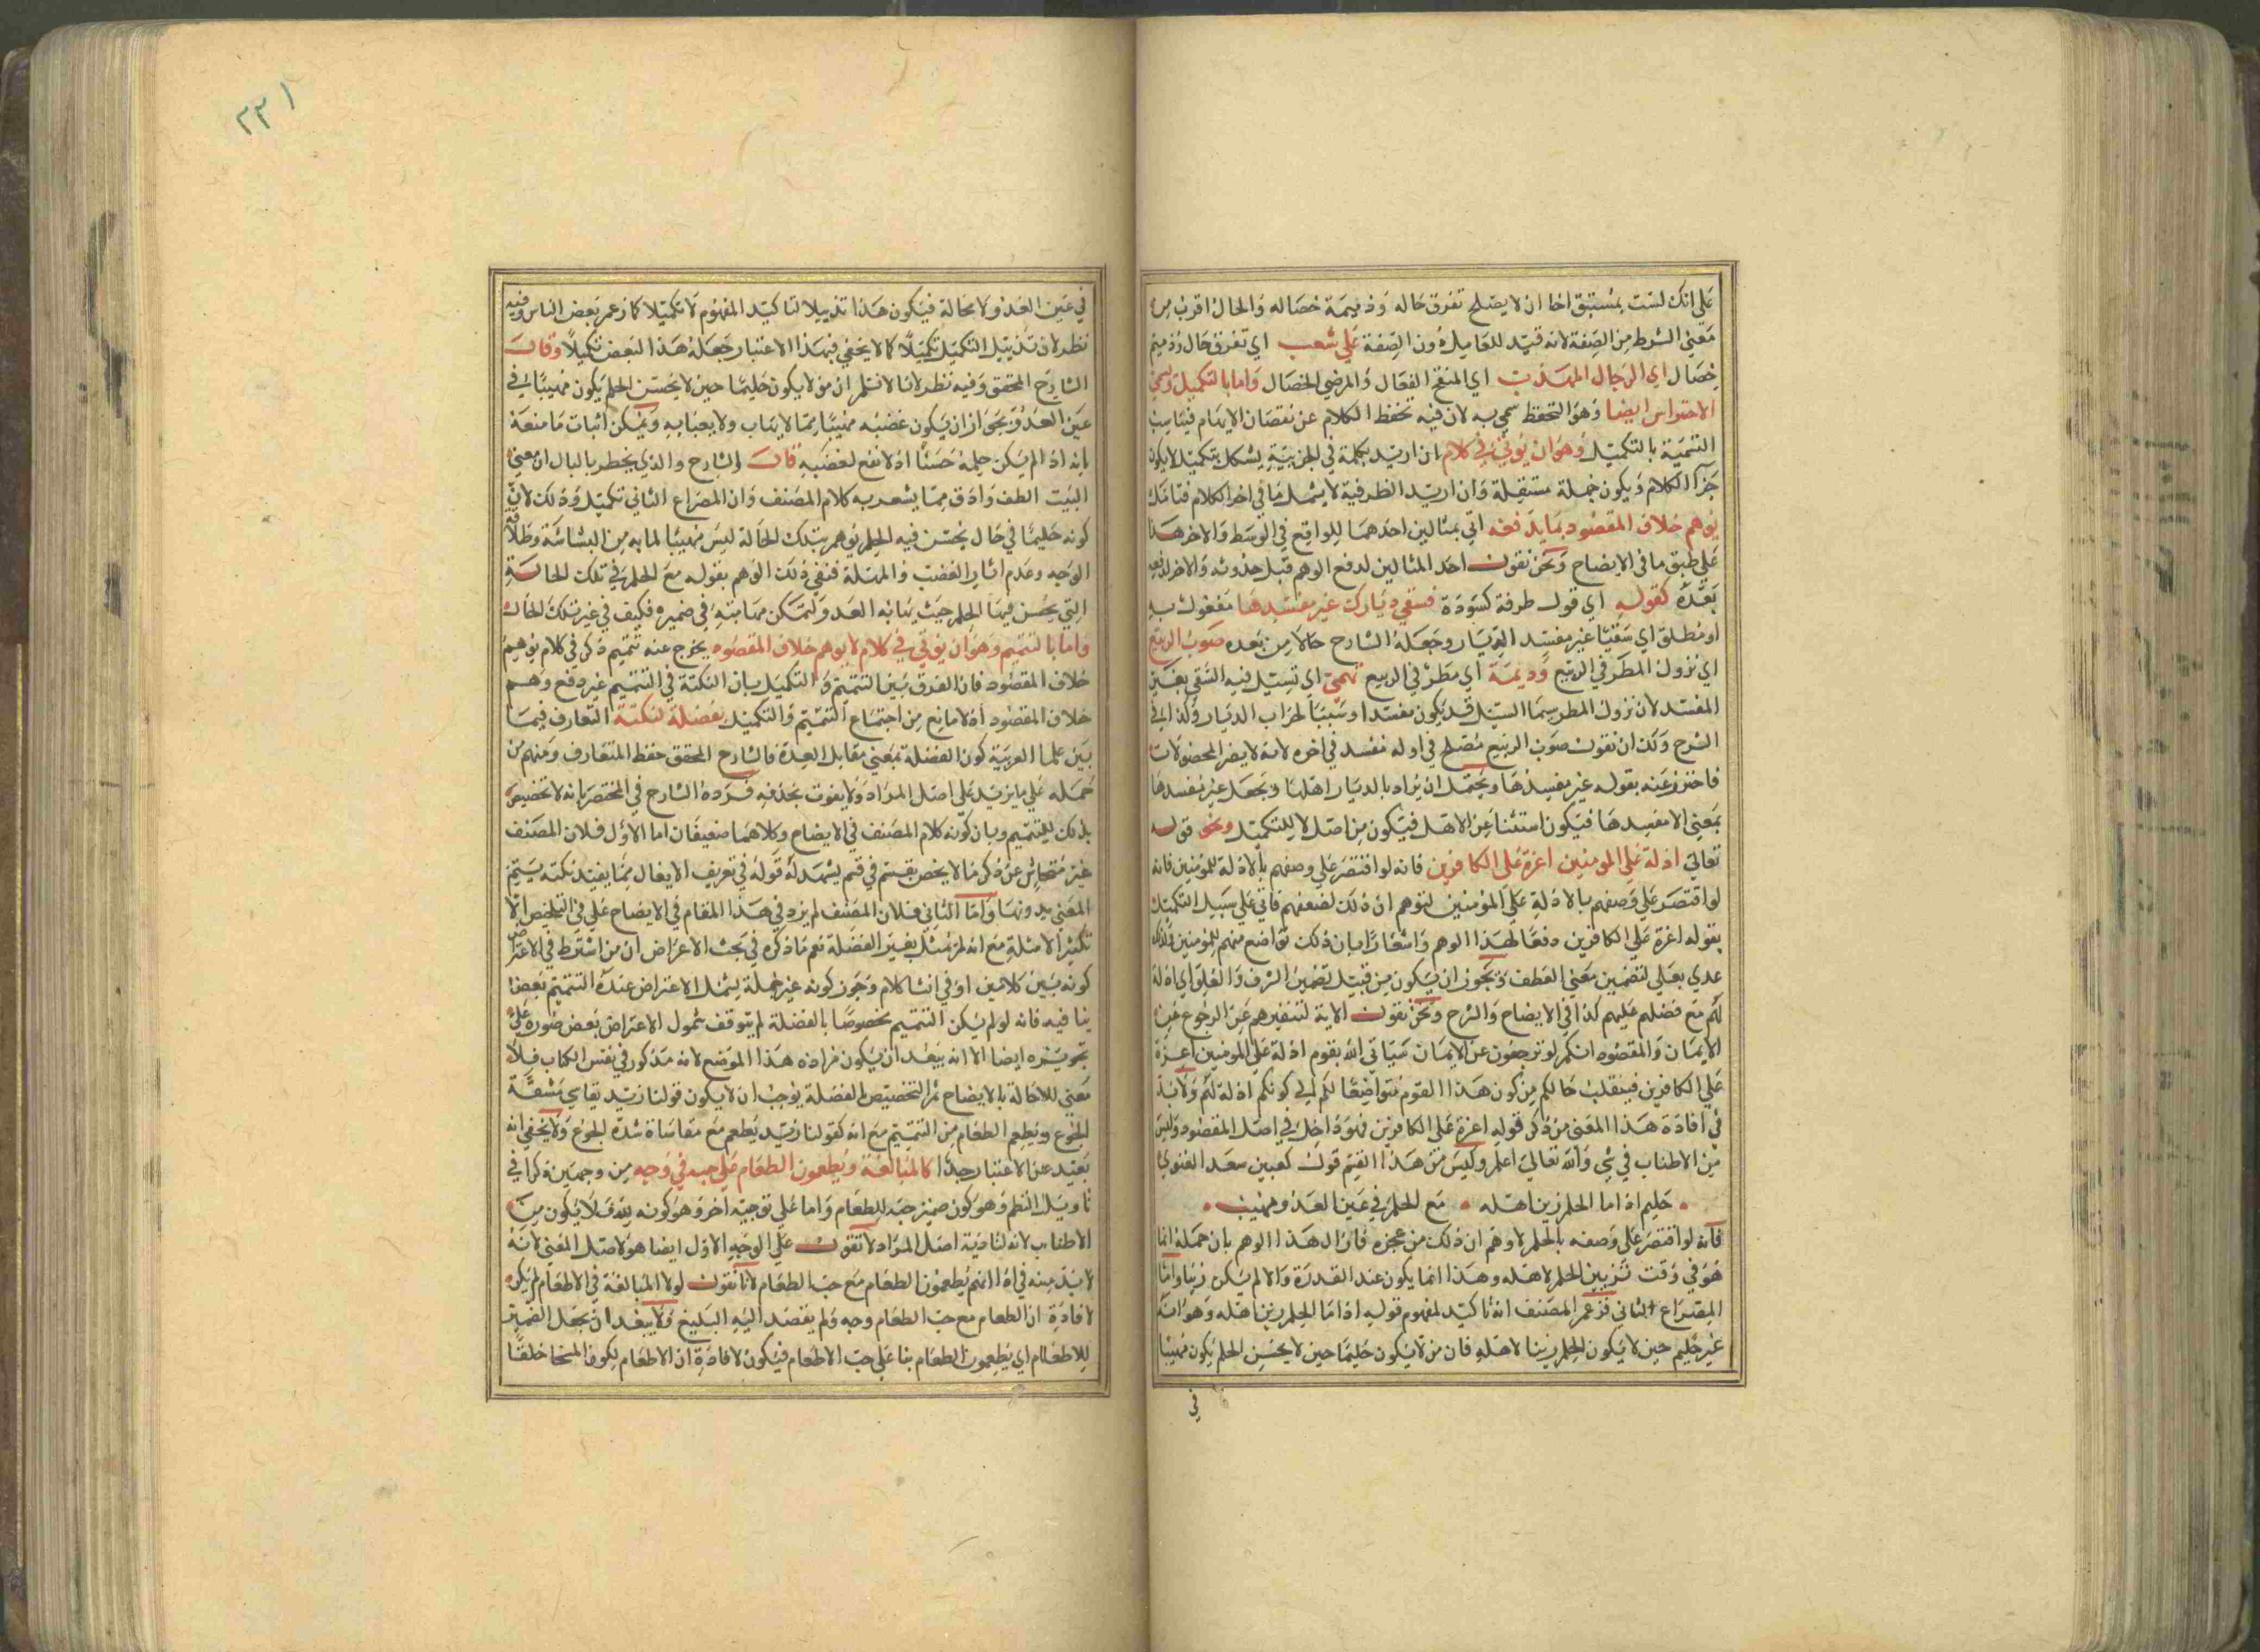 على انك لست بمستبق اخا ان لا يصلح تفرق حاله وذميمة خصاله والحال اقرب من
معنى الشرط من الصفة لانه قيد للعامل دون الصفة على شعب اي تفرق حال وذميم
خصال اي الرجال المهذب اي المنقح الفعال والمرضي الخصال واما بالتكميل ويسمى
الاحتراس ايضا وهو التحفظ سمي به لان فيه تحفظ الكلام عن نقصان الايهام فيناسب
التسمية بالتكميل وهو ان يؤتى في كلام ان اريد بكلمة في الجزيية يشكل بتكميل لا يكون
جزأ الكلام ويكون جملة مستقلة وان اريد الظرفية لا يشمل ما في اخر الكلام فتامل
يوهم خلاف المقصود بما يدفعه اتى بمثالين احدهما للواقع في الوسط والاخر هذا
على طبق ما في الايضاح ونحن نقول احد المثالين لدفع الوهم قبل حدوثه والاخر لدفعه
بعده كقوله اي قول طرفة كسودة فسقى ديارك غير مفسدها مفعول به
او مطلق اي سقيا غير مفسد الديار وجعله الشارح حالا من بعده صوب الربيع
اي نزول المطر في الربيع وديمة اي مطر في الربيع تهمي اي تسيل فيه النقي بغير
المفسد لان نزول المطر سيما السيل قد يكون مفسدا وسببا لخراب الديار وكذا في
الشرح ولك ان نقول صوب الربيع مصلح في اوله مفسد في اخره لانه لا يضر المحصولات
فاحترز عنه بقوله غير مفسدها ويحتمل ان يراد بالديار اهلها ويجعل غير مفسدها
بمعنى الا مفسدها فيكون استثنا عن الاهل فيكون من اصل لا للتكميل ونحو قوله
تعالى اذلة على المومنين اعزة على الكافرين فانه لو اقتصر على وصفهم بالاذلة للمؤمنين فانه
لو اقتصر على وصفهم بالاذلة على المؤمنين لتوهم ان ذلك لضعفهم فاتى على سبيل التكميل
بقوله اعزة على الكافرين دفعا لهذا الوهم واشعارا بان ذلك تواضع منهم للمؤمنين ولذلك
عدي بعلى لتضمين معنى العطف ويجوز ان يكون من قبيل تضمين الشرف والعلو اي اذلة
لهم مع فضلهم عليهم كذا في الايضاح والشرح ونحن نقول الاية لتنفيرهم عن الرجوع عن
الايمان والمقصود انكم لو ترجعون عن الايمان سياتي الله بقوم اذلة على المومنين اعزة
على الكافرين فينقلب حالكم من كون هذا القوم متواضعا لكم الى كونكم اذلة لهم ولا بد
في افادة هذا المعنى من ذكر قوله اعزة على الكافرين فهو داخل في اصل المقصود وليس
من الاطناب في شي والله تعالى اعلم وليس من هذا القيم قول كعب بن سعد الغنوي
حليم اذا ما الحلم زين اهله مع الحلم في عين العدو مهيب
فانه لو اقتصر على وصفه بالحلم لاوهم ان ذلك من عجزه فازال هذا الوهم بان حمله انما
هو في وقت تزيين الحلم لاهله وهذا انما يكون عند القدرة والا لم يكن زينا واما
المصراع الثاني فزعم المصنف انه تاكيد لمفهوم قوله اذا ما الحلم زين اهله وهو انه
غير حليم حين لا يكون الحلم زينا لاهله فان من لا يكون حليما حين لا يحسن الحلم يكون مهيبا
في
٢٢١
في عين العدو لا محالة فيكون هذا تذييلا لتاكيد المفهوم لا تكميلا كما زعم بعض الناس وفيه
نظر لان تذييل التكميل تكميلا كما لا يخفى فبهذا الاعتبار جعله هذا البعض تكميلا وقال
الشارح المحقق وفيه نظر لانا لا نسلم ان من لا يكون حليما حين لا يحسن الحلم يكون مهيبا في
عين العدو بجواز ان يكون غضبه مهيبا مما لا يهاب ولا يعبا به ويمكن اثبات ما منعه
بانه اذ الم يكن حلمه حسنا اذ لا نفع لغضبه قال الشارح والذي يخطر بالبال ان معنى
البيت الطف وادق مما يشعر به كلام المصنف وان المصراع الثاني تكميل وذلك لان
كونه حليما في حال يحسن فيه الحلم يوهم بتلك الحالة ليس مهيبا لما به من البشاشة وطلاقة
الوجه وعدم اثار الغضب والمهلة فنفى ذلك الوهم بقوله مع الحلم في تلك الحالة
التي يحسن فيها الحلم حيث يهابه العدو ولتمكن مهابته في ضميره فكيف في غير تلك الحال
واما بالتتميم وهو ان يؤتى في كلام لا يوهم خلاف المقصود يخرج عنه تتميم ذكر في كلام يوهم
خلاف المقصود فان الفرق بين التتميم والتكميل بان النكتة في التتميم غير دفع وهم
خلاف المقصود اذ لا مانع من اجتماع التتميم والتكميل بفضلة لنكتة التعارف فيما
بين علما العربية كون الفضلة بمعنى مقابل العمدة فالشارح المحقق حفظ المتعارف ومنهم من
حمله على ما يزيد على اصل المراد ولا يفوت بحذفه فرده الشارح في المختصر بانه لا تخصيص
بذلك للتتميم وبان كونه كلام المصنف في الايضاح وكلاهما ضعيفان اما الاول فلان المصنف
غير متحاش عن ذكر ما لا يخص بقسم في قسم يشهد له قوله في تعريف الايغال مما يفيد نكتة يتم
المعنى بدونها واما الثاني فلان المصنف لم يزد في هذا المقام في الايضاح على في التلخيص الا
تكثير الامثلة مع انه لم يمثل بغير الفضلة نعم ما ذكره في بحث الاعراض ان من اشترط في الاعتراض
كونه بين كلامين او في اثنا كلام وجوز كونه غير جملة يشمل الاعتراض عنده التتميم بعضا
ينافيه فانه لو لم يكن التتميم مخصوصا بالفضلة لم يتوقف شمول الاعتراض بعض صوره على
تجويزه ايضا الا انه يبعد ان يكون مراده هذا الموضع لانه مذكور في نفس الكتاب فلا
معنى للاحالة بالايضاح ثم التخصيص بالفضلة يوجب ان لا يكون قولنا زيد يقاسي مشقة
الجوع ويطعم الطعام من التتميم مع انه كقولنا زيد يطعم مع مقاساة شدة الجوع ولا يخفى انه
بعيد عن الاعتبار جدا كالمبالغة ويطعمون الطعام على حبه في وجه من وجهين ذكرا في
تاويل النظم وهو كون ضمير حبه للطعام واما على توجيه اخر وهو كونه لله فلا يكون من
الاطناب لانه لتادية اصل المراد لا تقول على الوجه الاول ايضا هو لاصل المعنى لانه
لا بد منه في افادة انهم يطعمون الطعام مع حب الطعام لانا نقول لولا المبالغة في الاطعام لم يكن
لافادة ان الطعام مع حب الطعام وجه ولم يقصد اليه البليغ ولا يبعد ان نجعل الضمير
للاطعام اي يطعمون الطعام بنا على حب الاطعام فيكون لافادة ان الاطعام لكون السخا خلقا